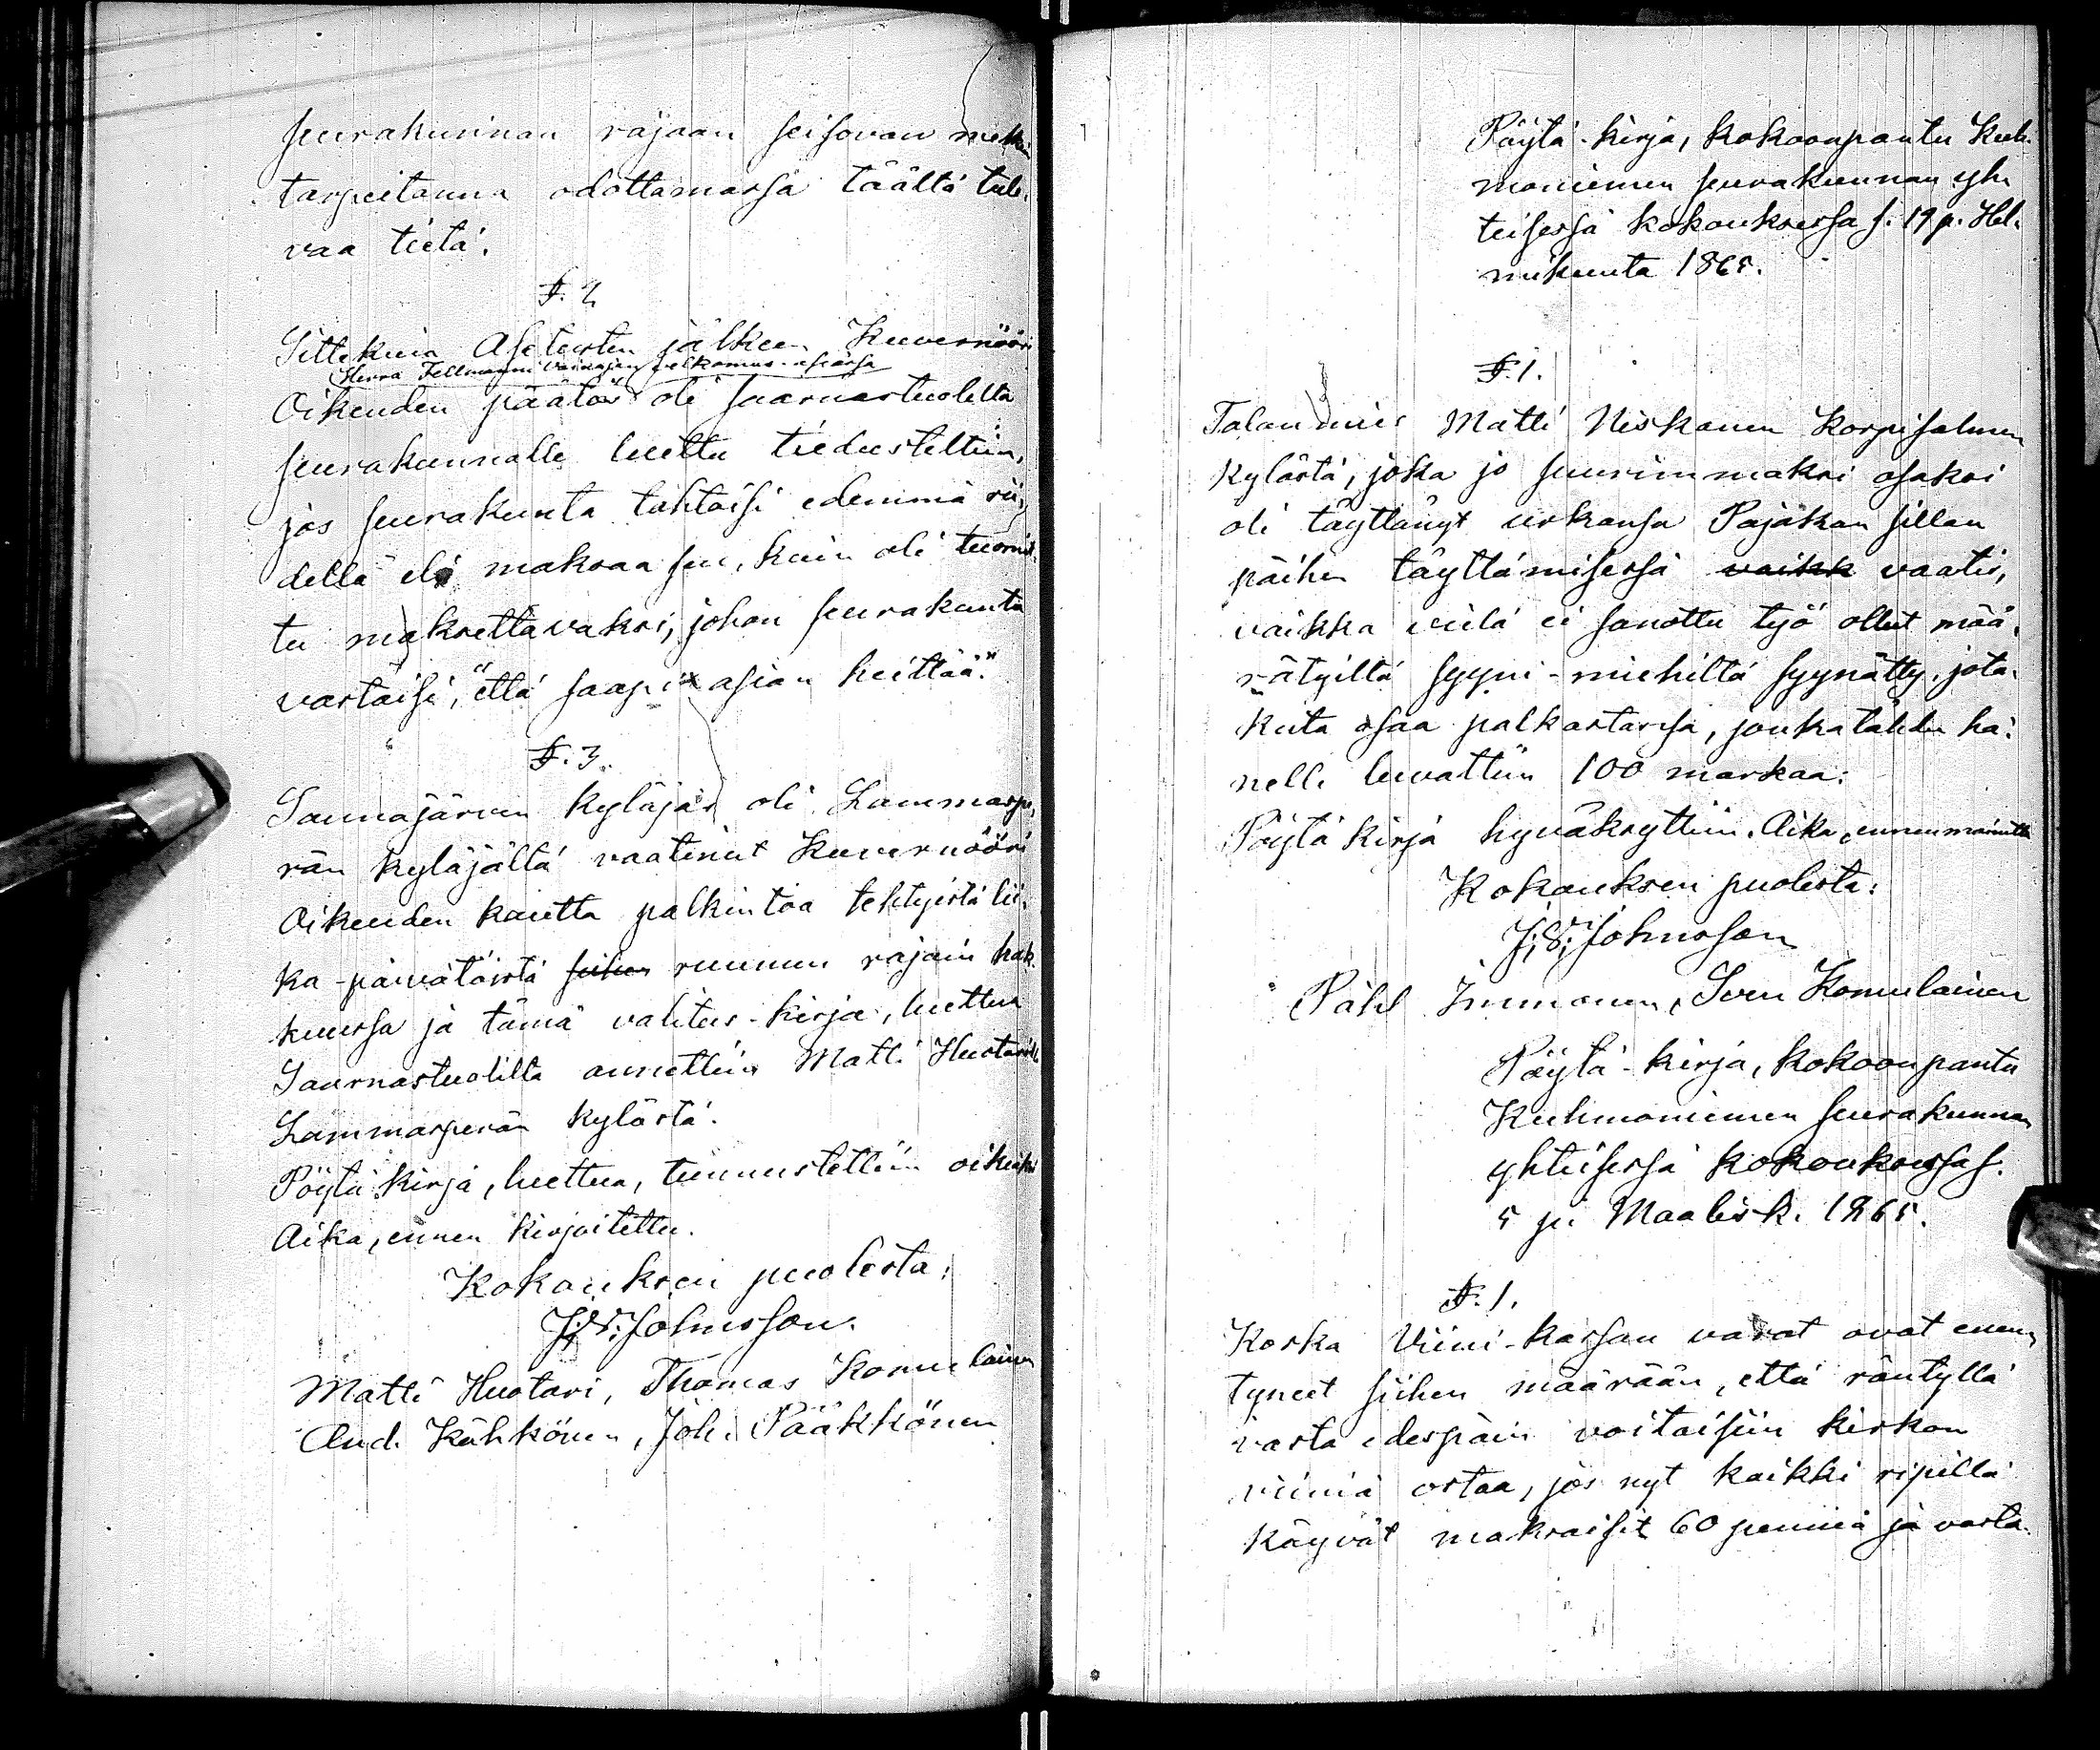 seurakunnan rajaan seisovan
tarpeitanna odottamassa täältä tule-
vaa tietä.
§. 2
Sittekuin Asetusten jälkeen Kuvernööri
Herra Fellmanni vainajan palkamus-asiassa
Oikeuden päätös oli saarnastuolilta
seurakunnalle luettu tiedusteltiin,
jos seurakunta tahtoisi edemmä rii-
dellä eli maksaa sen, kuin oli tuomit-
tu maksettavaksi, johon seurakunta
vastaisi, "että saapi asian heittää."
§. 3.
Saunajärven kyläjäs oli Lammaspe-
rän kyläjältä vaatinut Kuvernööri
Oikeuden kautta palkintoa tehtyistä lii-
ka-päivätöistä siihen ruunun rajain hak-
kuussa ja tämä valitus-kirja, luettua
Saarnastuolilta annettiin Matti Huotarille
Lammasperän kylästä.
Pöytä kirja, luettua, tunnustettiin oikiaksi
Aika, ennen kirjoitettu.
Kokouksen puolesta:
J; V; Johnsson.
Matti Huotari, Thomas Komulainen
And. Kähkönen, Joh. Pääkkönen
Pöytä-kirja, kokoonpantu Kuh-
moniemen seurakunnan yh-
teisessä kokouksessa s. 19 p. Hel-
mikuuta 1865.
§. 1.
Talanmies Matti Niskanen Korpisalmen
kylästä, joka jo suurimmaksi osaksi
oli täyttänyt urkansa Pajakan sillan
päihen täyttämisessä vaikk vaatis,
vaikka vielä ei sanottu työ ollut mää-
rätyiltä syyni-miehiltä syynätty, jota-
kuta osaa palkastansa, jonkatähden hä-
nelle luvattiin 100 markaa.
Pöytä kirja hyväksyttiin. Aika, ennenmainittu
Kokouksen puolesta:
J; V; Johnsson
Påhl Immonen, Sven Komulainen
Pöytä-kirja, kokoonpantu
Kuhmoniemen seurakunnan
yhteisessä kokouksessa s.
5 p: Maalisk. 1865.
§. 1.
Koska Viini-kassan varat ovat enen-
tyneet siihen määrään, että räntyllä
vasta edespäin voitaisiin kirkon
viiniä ostaa, jos nyt kaikki ripillä
käyvät maksaisit 60 penniä ja vasta-